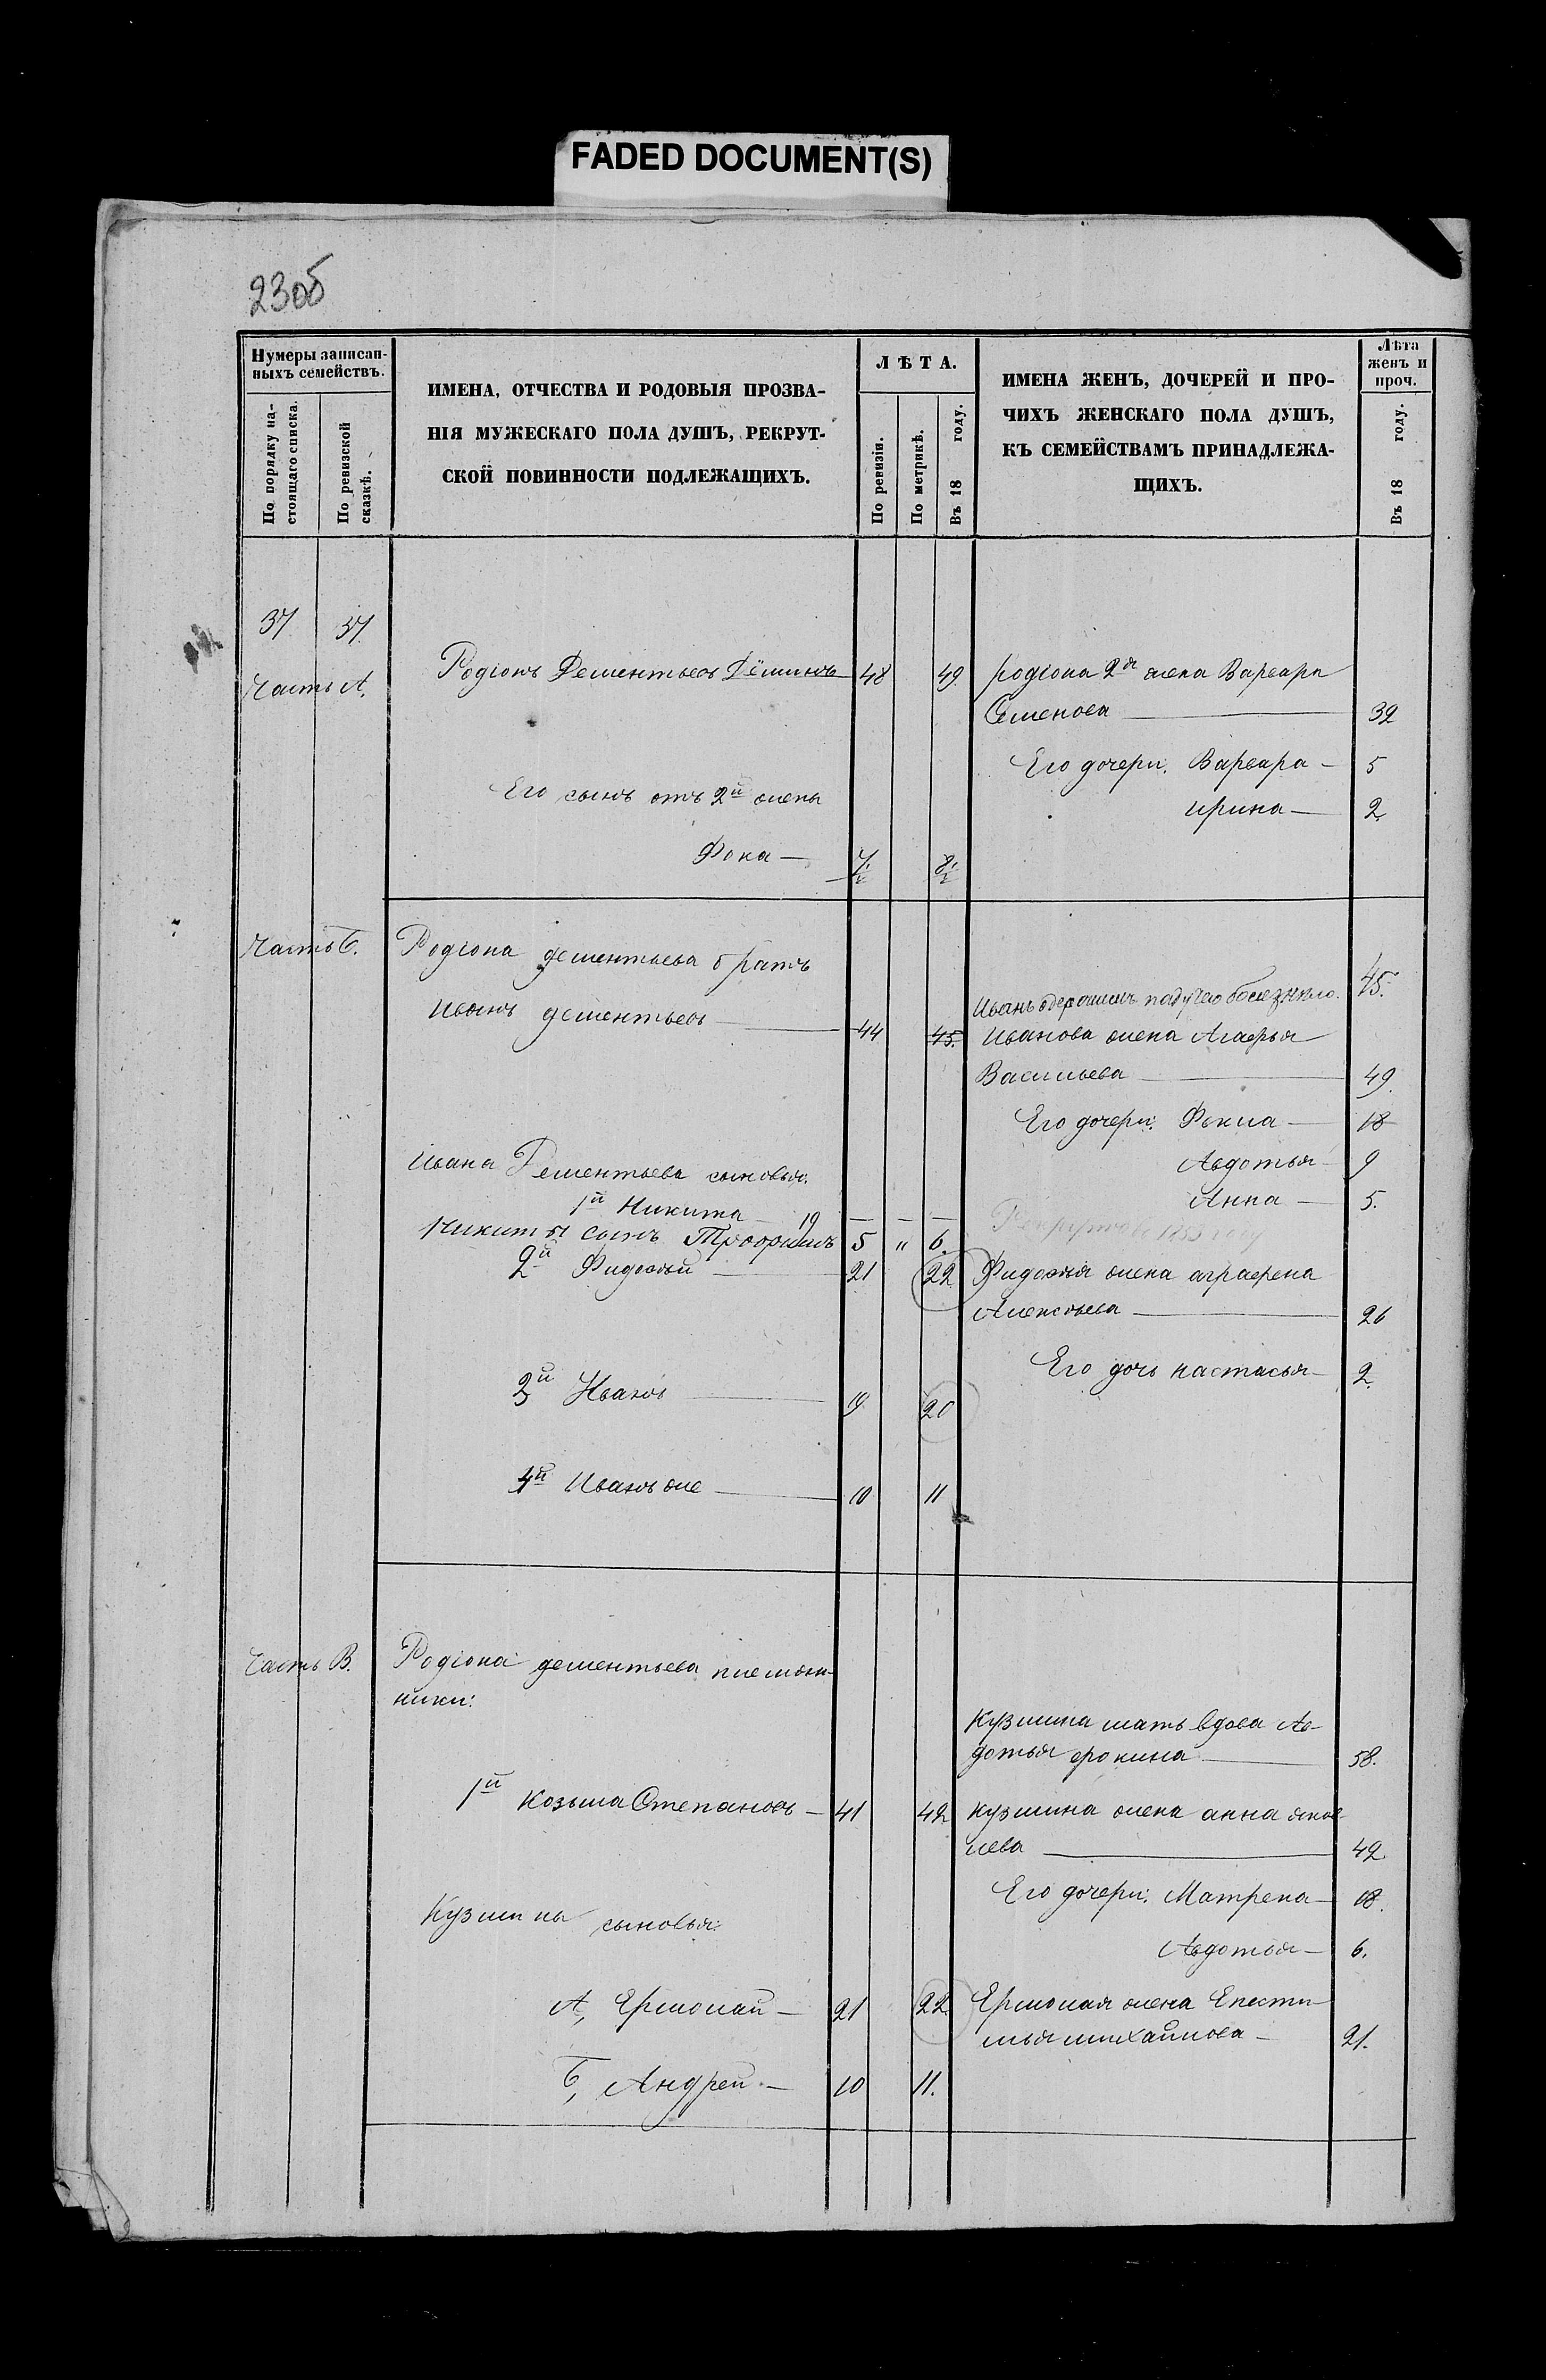 FADED DOCUMENT(S)
230б
Нумеры записан-
ныхъ семействъ.
По порядку на-
стоящаго списка.
По ревизской
сказкѣ.
ИМЕНА, ОТЧЕСТВА И РОДОВЫЯ ПРОЗВА-
НІЯ МУЖЕСКАГО ПОЛА ДУШЪ, РЕКРУТ-
СКОЙ ПОВИННОСТИ ПОДЛЕЖАЩИХЪ.
ЛѢТА.
По ревизіи.
По метрикѣ.
Въ 18 году.
ИМЕНА ЖЕНЪ, ДОЧЕРЕЙ И ПРО-
ЧИХЪ ЖЕНСКАГО ПОЛА ДУШЪ,
КЪ СЕМЕЙСТВАМЪ ПРИНАДЛЕЖА-
ЩИХЪ.
Лѣта
женъ и
проч.
Въ 18 году.
37 37.
Часть А. Родіонъ Дементьевъ Дёминъ 48 49 Родіона 2я жена Варвара
Семенова — 39
Его дочери: Варвара — 5
Его сынъ отъ 2й жены
Ирина — 2.
Фока — 7½ 8½
Часть Б. Родіона дементьева братъ
Иванъ одержимъ падучею болезнью. 45.
Иванъ дементьевъ — 44 45. Иванова жена Агафья
Васильева — 49.
Его дочери: Фекла — 18
Ивана Дементьева сыновья: Авдотья — 9
1й Никита 19 — — — Анна — 5.
Никиты сынъ Трофимъ 5 " 6. 
2й Фидотъй — 21 22 Фидотъя жена аграфена
Алексъева — 26
Его дочь настасья — 2.
3й Иванъ — 19 20
4й Иванъ же — 10 11
Часть В. Родіона дементьева племян-
ники:
Кузмина мать вдова Ав-
дотья фокина — 58.
1й Козьма Степановъ — 41 42 Кузмина жена анна яков-
лева — 42.
Его дочери: Матрена — 18.
Кузмины сыновья:
Авдотья — 6.
А, Ермолай — 21 22. Ермолая жена Епести-
мья михайлова — 21.
Б, Андрей. — 10 11.